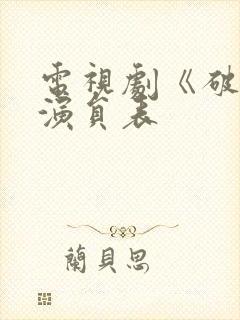 電視劇《破
演員表
蘭貝思